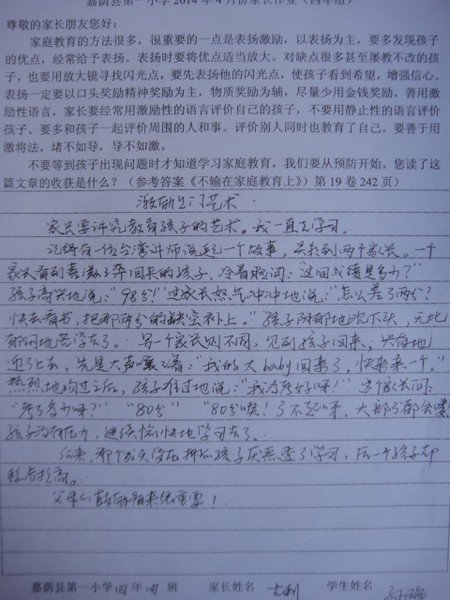 嘉荫县第一小学2014年4月份家长作业（四年组）
尊敬的家长朋友您好：
家庭教育的方法很多，很重要的一点是表扬激励，以表扬为主，要多发现孩子
的优点，经常给予表扬。表扬时要将优点适当放大。对缺点很多甚至屡教不改的孩
子，也要用放大镜寻找闪光点，要先表扬他的闪光点，使孩子看到希望，增强信心。
表扬一定要以口头奖励精神奖励为主，物质奖励为辅，尽量少用金钱奖励。善用激
励性语言，家长要经常用激励性的语言评价自己的孩子，不要用静止性的语言评价
孩子。要多和孩子一起评价周围的人和事。评价别人同时也教育了自己。要善于用
激将法，堵不如导、导不如激。
不要等到孩子出现问题时才知道学习家庭教育，我们要从预防开始。您读了这
篇文章的收获是什么？（参考答案《不输在家庭教育上》）第19卷242页）
激励是门艺术
家长要讲究教育孩子的艺术。我一直在学习。
记得有一位台湾讲师说起一个故事，关于两个家长。一个
家长看到喜滋滋奔回来的孩子，冷着脸问：“这回成绩是多少？”
孩子高兴地说：“98分！”这家长怒气冲冲地说：“怎么差了两分？
快去看书，把那两分的缺空补上。”孩子阴郁地低下头，无比
郁闷地去学习了。另一个家长则不同，见到孩子回来，兴奋地
迎了上去，先是大声嚷着：“我的大baby回来了，快来亲一个。”
热烈地吻过之后，孩子难过地说：“我没考好呀！”这个家长问：
“考了多少呀？”“80分”“80分噢！了不起呀，大部分都会喽
孩子没有压力，继续愉快地学习去了。
后来，那个成天督促
孩子厌烦透了学习，后一个孩子却
父母的鼓励看来很重要！
嘉荫县第一小学四年四班 家长姓名 学生姓名